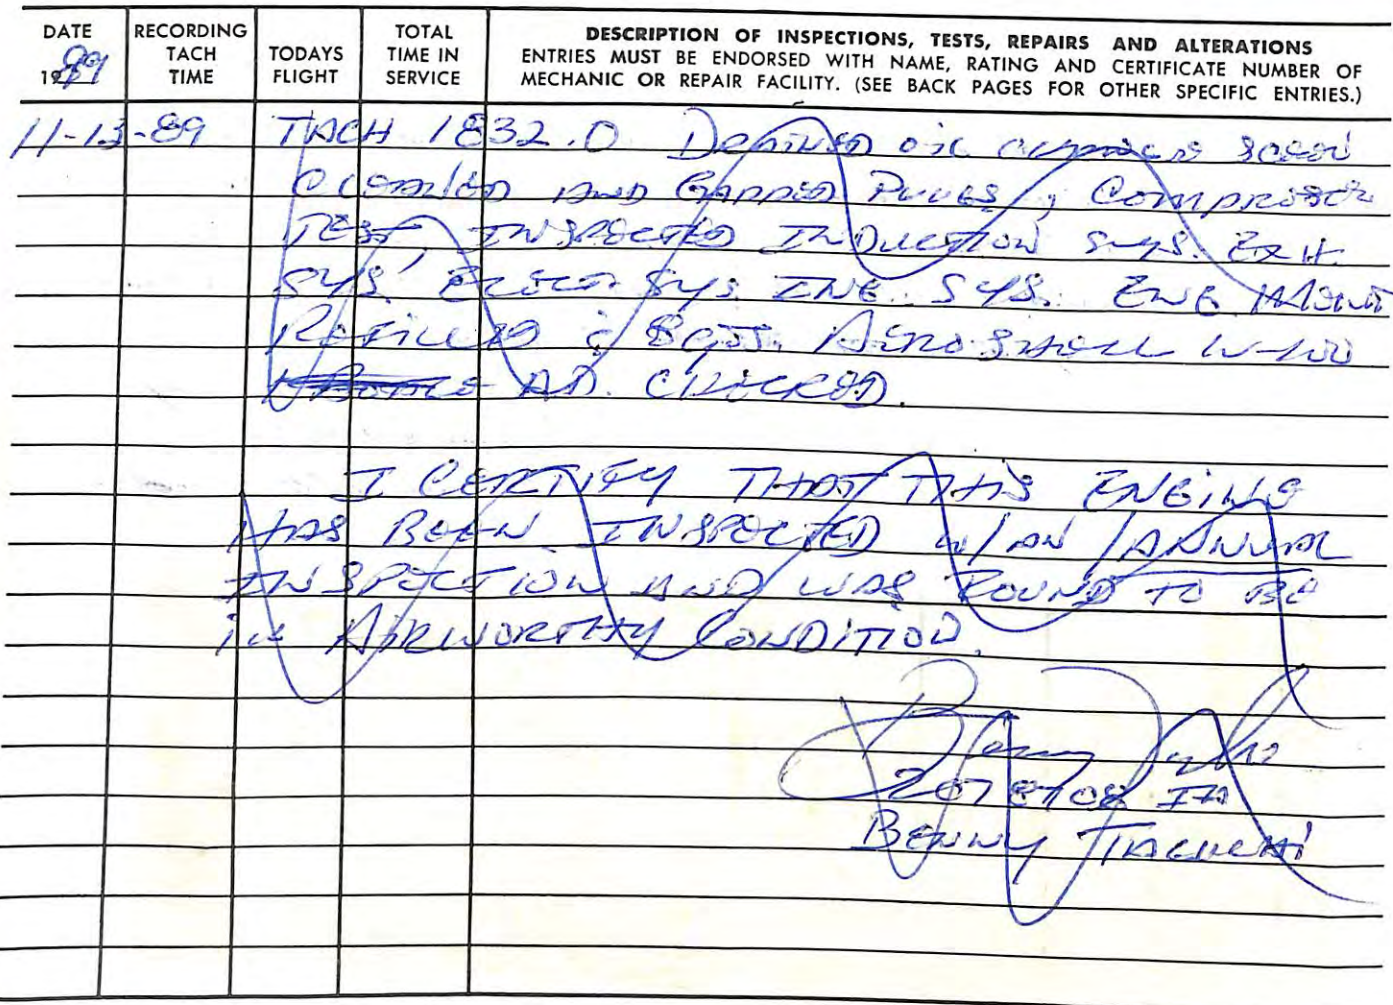 DATE
1989
RECORDING
TACH
TIME
TODAYS
FLIGHT
TOTAL
TIME IN
SERVICE
DESCRIPTION OF INSPECTIONS, TESTS, REPAIRS AND ALTERATIONS
ENTRIES MUST BE ENDORSED WITH NAME, RATING AND CERTIFICATE NUMBER OF
MECHANIC OR REPAIR FACILITY. (SEE BACK PAGES FOR OTHER SPECIFIC ENTRIES.)
11-13-89 TACH 1832.0 DRAINED OIL
CLEANED AND GAPPED PLUGS,
TEST, INSPECTED INDUCTION SYS. EXH.
SYS. SYS. ENG. SYS. ENG MOUNT
REFILLED 8 QTS. AEROSHELL W-100
AD. CHECKED.
I CERTIFY THAT THIS ENGINE
HAS BEEN INSPECTED W/AN ANNUAL
INSPECTION AND WAS FOUND TO BE
IN AIRWORTHY CONDITION.
IA
BENNY